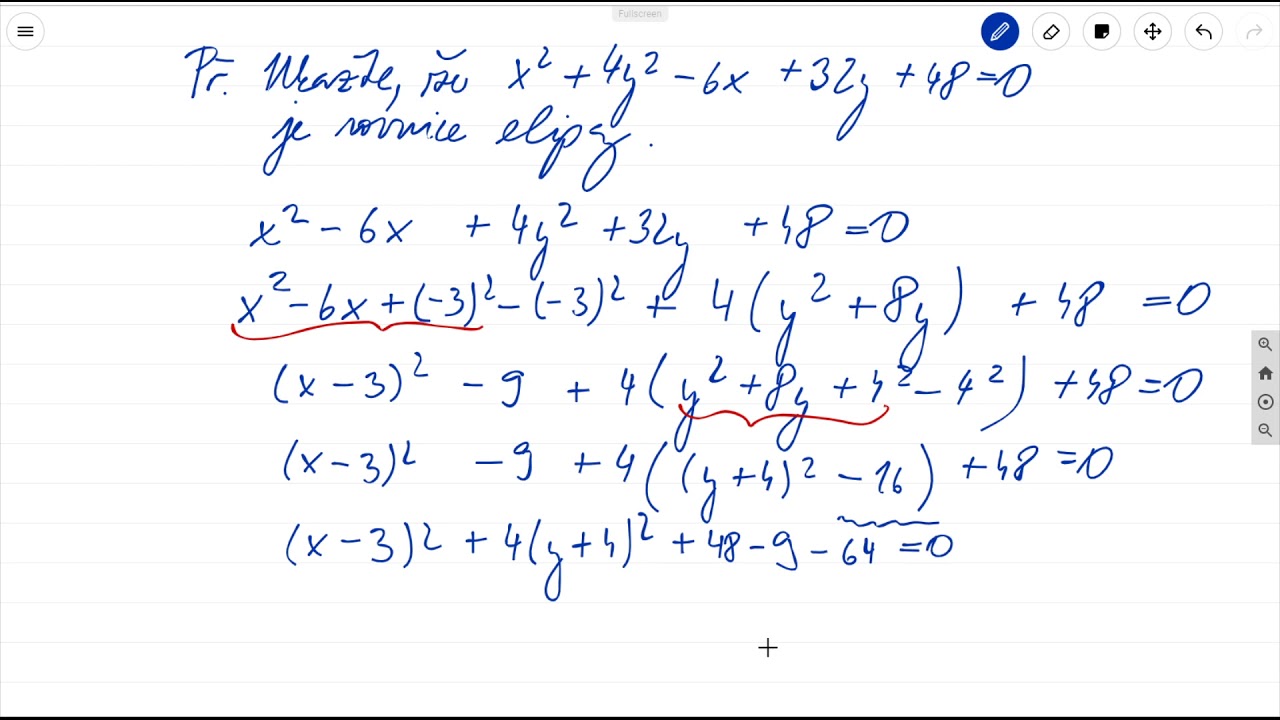 Fullscreen
Př. Ukažte, že x² + 4y² - 6x + 32y + 48 = 0
je rovnice elipsy.
x² - 6x + 4y² + 32y + 48 = 0
x² - 6x + (-3)² - (-3)² + 4(y² + 8y) + 48 = 0
(x - 3)² - 9 + 4(y² + 8y + 4² - 4²) + 48 = 0
(x - 3)² - 9 + 4((y + 4)² - 16) + 48 = 0
(x - 3)² + 4(y + 4)² + 48 - 9 - 64 = 0